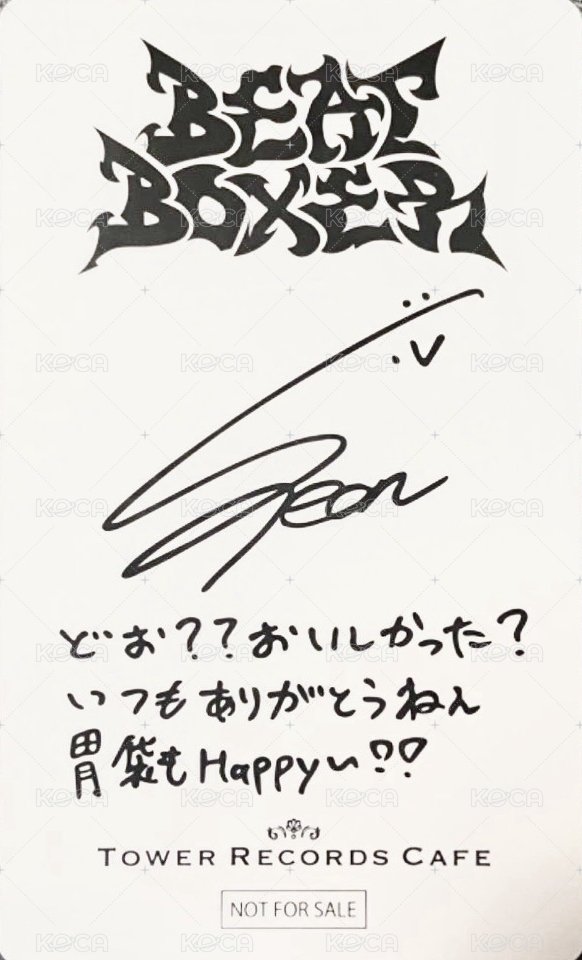 BEAT
BOXER
Geon
どお??おいしかった?
いつもありがとうねん
胃袋もHappyい??
TOWER RECORDS CAFE
NOT FOR SALE
KOCA